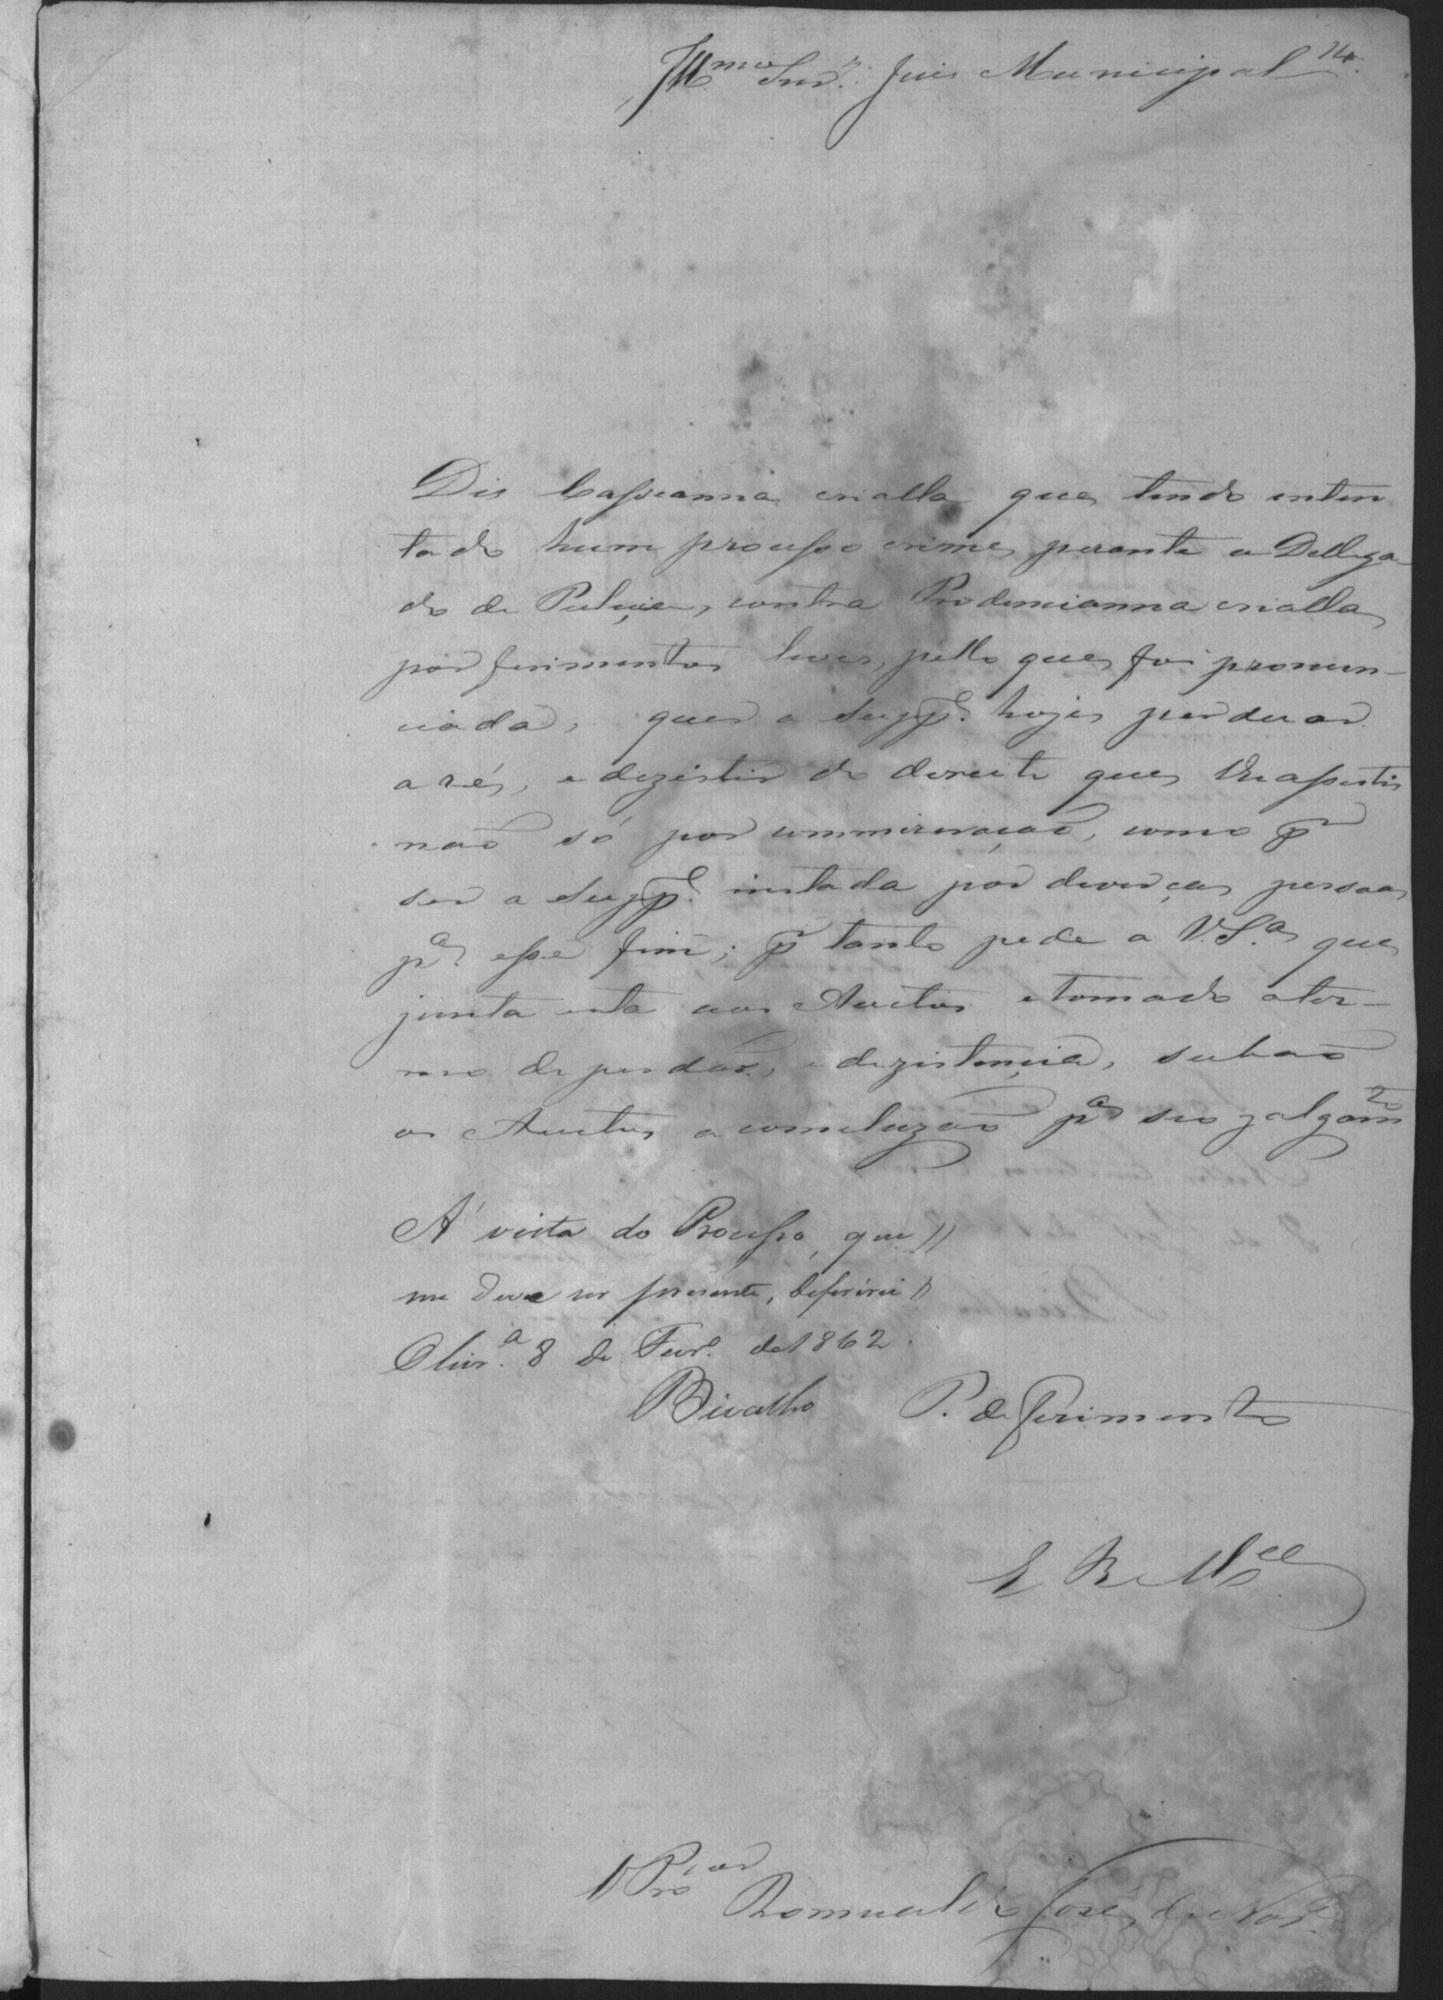 Illmo Snr. Juis Municipal
Dis Cassianna crialla que tendo inten
tado hum processo crime perante o Dellega
do de Puliçia, contra Prodencianna crialla
por ferimentos leves, pello que foi pronun-
ciada, quer a Suppe. hoje perduar
a ré, e dezistir do dereito que lhe assestir
não só por commizeração, como pr
ser a Suppe. instada por deverças pessoas
pa. esse fim; pr tanto pede a V.Sa. que
junta esta aos Auctos e tomado o ter-
mo de perdão, e dezistençia, subão
os Auctos a comcluzão pa seo julgamto
A' vista do Processo, que
me deve ser presente, deferirei
Olivra. 8 de Fevro. de 1862.
Bicalho P. deferimento
E R Mce
Romualdo José de